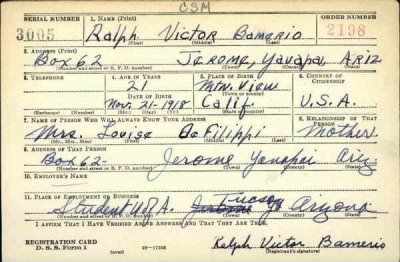 CSM
SERIAL NUMBER 1. NAME (Print) ORDER NUMBER
3005 Ralph Victor Bamerio 2198
(First) (Middle) (Last)
2. ADDRESS (Print)
Box 62 Jerome, Yavapai, Ariz
(Number and street or R. F. D. number) (Town) (County) (State)
3. TELEPHONE 4. AGE IN YEARS 5. PLACE OF BIRTH 6. COUNTRY OF CITIZENSHIP
21 Mtn. View
DATE OF BIRTH (Town or county)
Nov. 21-1918 Calif. U.S.A.
(Exchange) (Number) (Mo.) (Day) (Yr.) (State or country)
7. NAME OF PERSON WHO WILL ALWAYS KNOW YOUR ADDRESS 8. RELATIONSHIP OF THAT PERSON
Mrs. Louise DeFilippi Mother
(Mr., Mrs., Miss) (First) (Middle) (Last)
9. ADDRESS OF THAT PERSON
Box 62- Jerome Yavapai Ariz
(Number and street or R. F. D. number) (Town) (County) (State)
10. EMPLOYER'S NAME
11. PLACE OF EMPLOYMENT OR BUSINESS Tucson
Student U. of A. Jerome Arizona
(Number and street or R. F. D. number) (Town) (County) (State)
I AFFIRM THAT I HAVE VERIFIED ABOVE ANSWERS AND THAT THEY ARE TRUE.
REGISTRATION CARD
D. S. S. Form 1 (over) 16—17105 Ralph Victor Bamerio
(Registrant's signature)